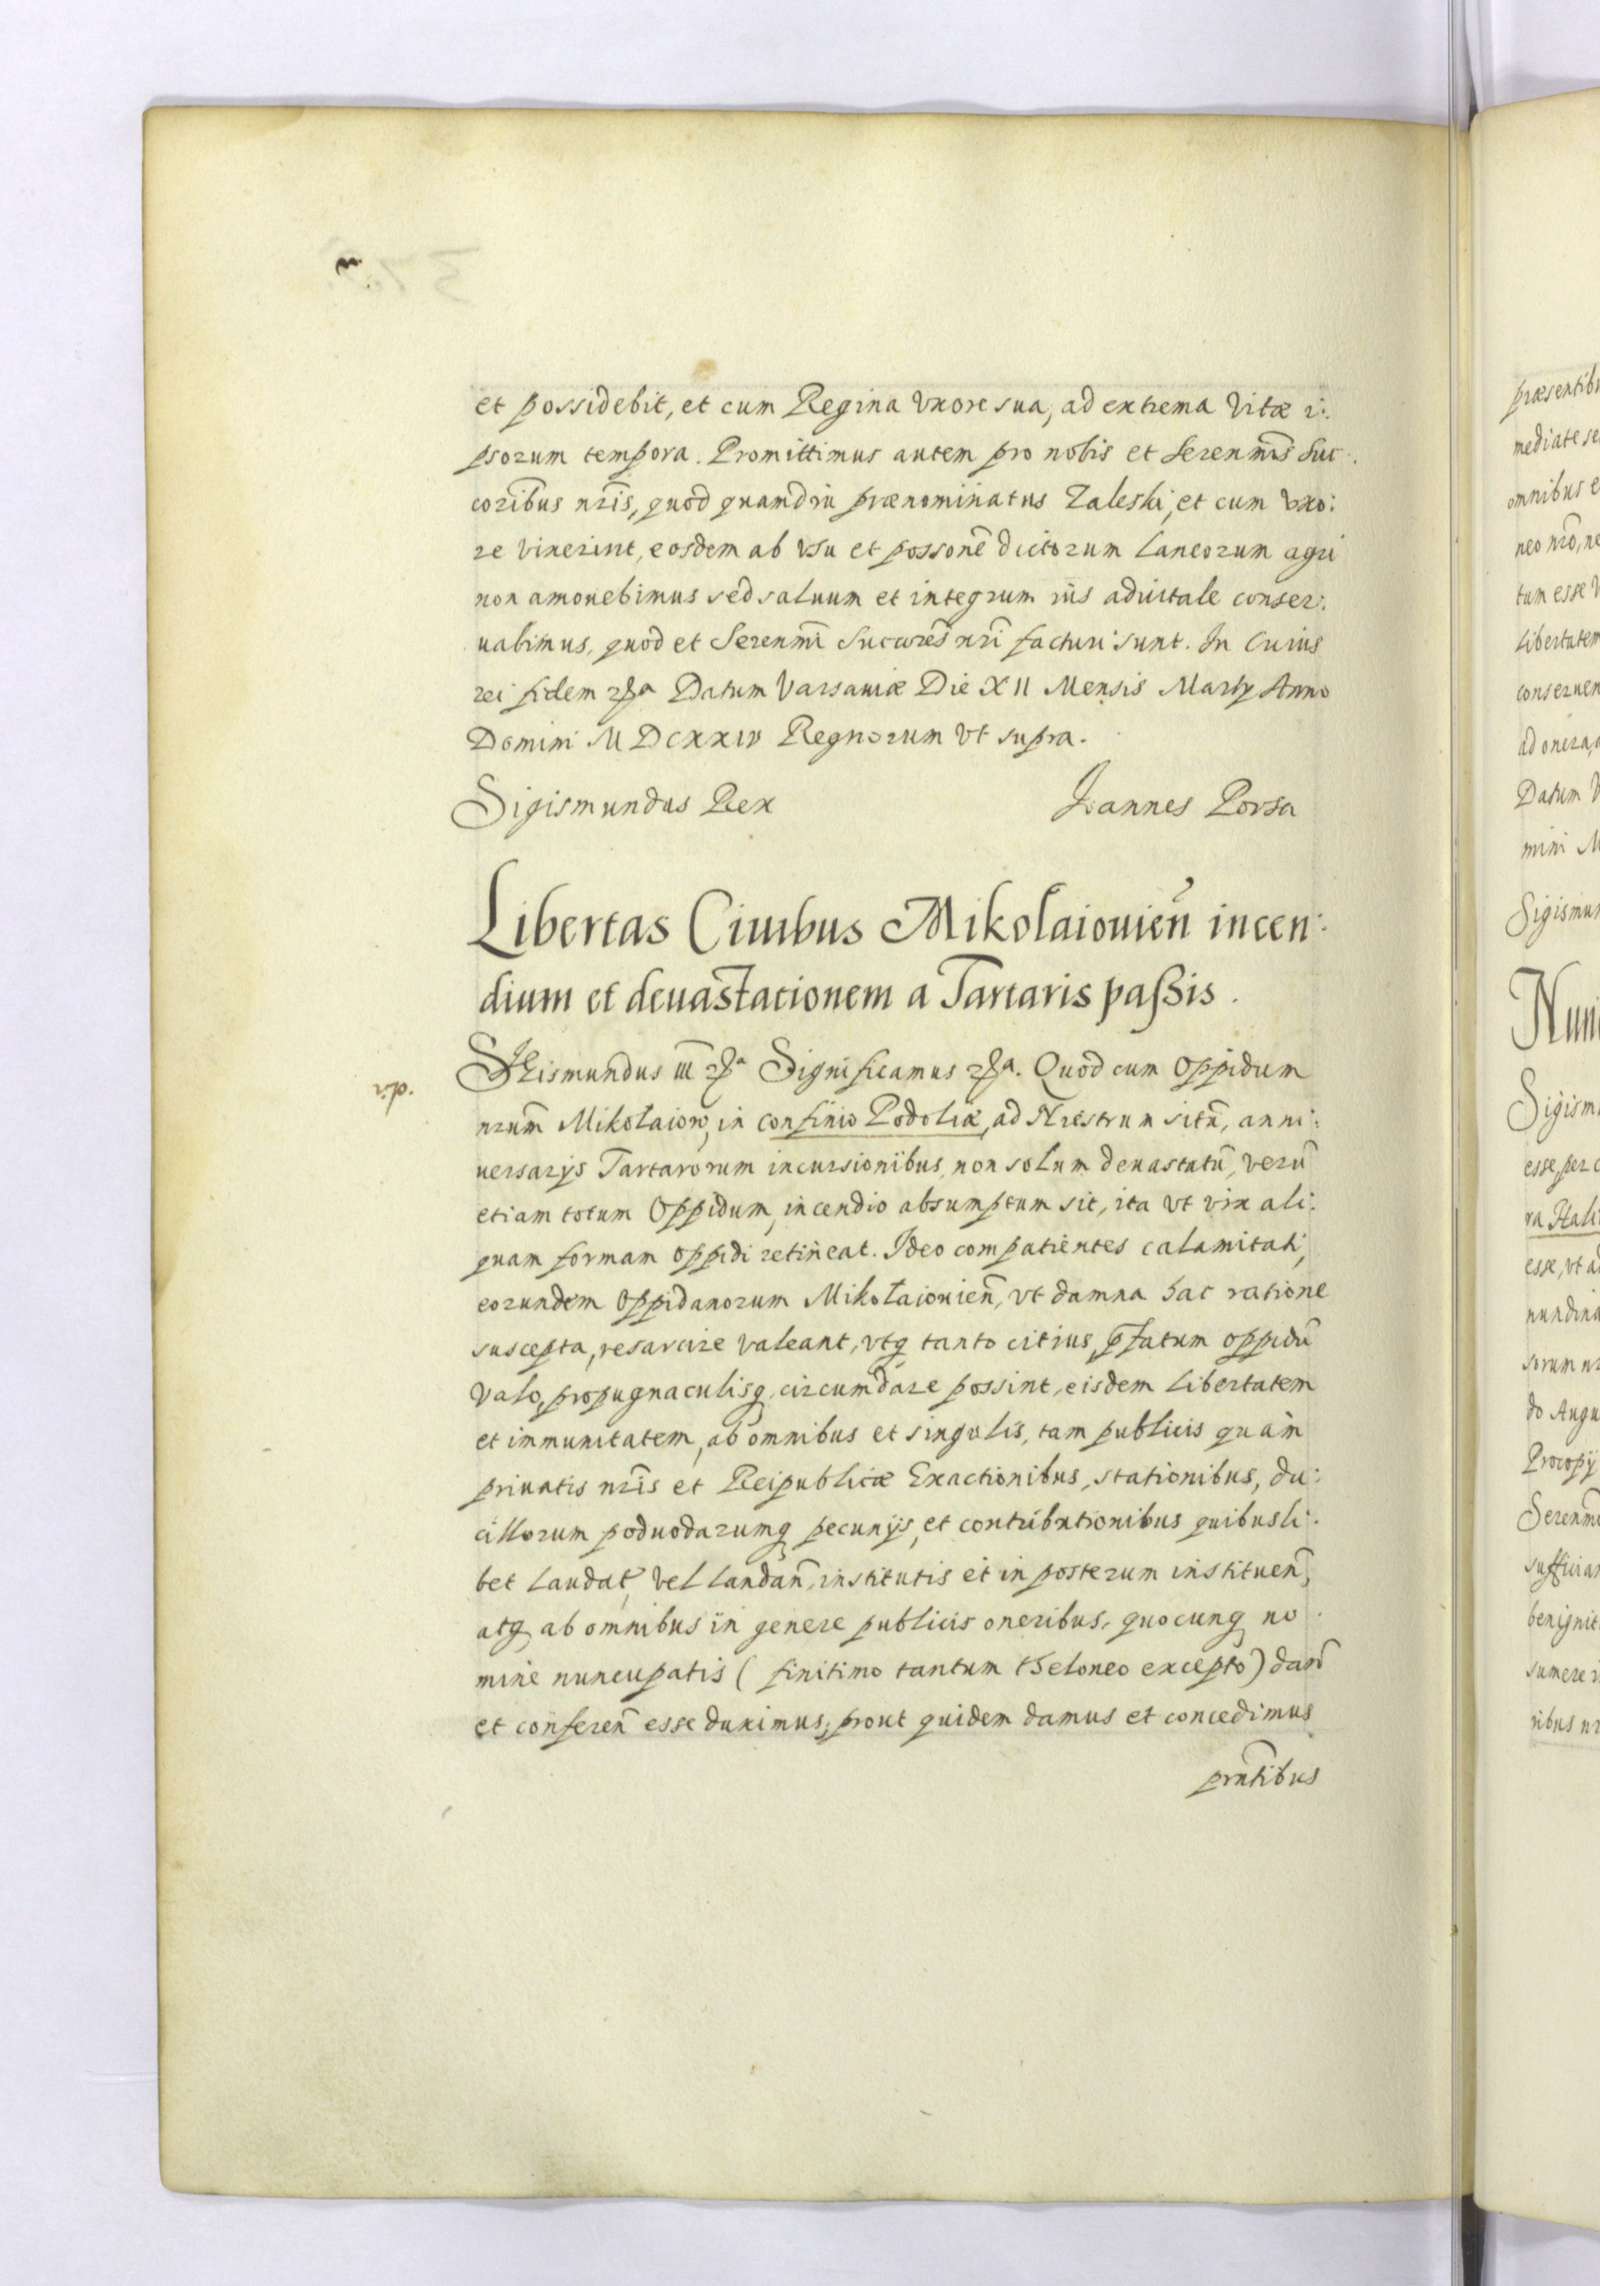 et possidebit, et cum Regina vxore sua, ad extrema vitæ i:
psorum tempora. Promittimus autem pro nobis et Serenmis Suc:
coribus nris, quod quamdiu prænominatus Zaleski, et cum vxo:
re vixerint, eosdem ab vsu et possone dictorum Laneorum agri
non amouebimus sed saluum et integrum ius aduitale conser:
uabimus, quod et Serenmi Succores nri facturi sunt. In Cuius
rei fidem Datum Varsauiæ Die XII Mensis Martij Anno
Domini MDCXXIV Regnorum vt supra.
Sigismundus Rex Joannes Porsa
Libertas Ciuibus Mikolaiouien incen:
dium et deuastationem a Tartaris paßis.
Sigismundus III Significamus Quod cum Oppidum
nrum Mikołaiow, in confinio Podoliæ, ad Niestrum situ, anni:
uersarijs Tartarorum incursionibus, non solum deuastatu, veru
etiam totum Oppidum, incendio absumptum sit, ita vt vix ali:
quam formam oppidi retineat. Ideo compatientes calamitati,
eorundem Oppidanorum Mikołaiouien, vt damna hac ratione
suscepta, resarcire valeant, vtq tanto citius, pfatum oppidu
Valo, propugnaculisq circumdare possint, eisdem Libertatem
et immunitatem, ab omnibus et singulis, tam publicis quam
priuatis nris et Reipublicæ Exactionibus, stationibus, du:
cillorum poduodarumq pecunijs, et contributionibus quibusli:
bet laudat, vel laudan, institutis et in posterum instituen,
atq ab omnibus in genere publicis oneribus, quocunq no:
mine nuncupatis ( finitimo tantum theloneo excepto) dan
et conferen esse duximus, prout quidem damus et concedimus
prntibus